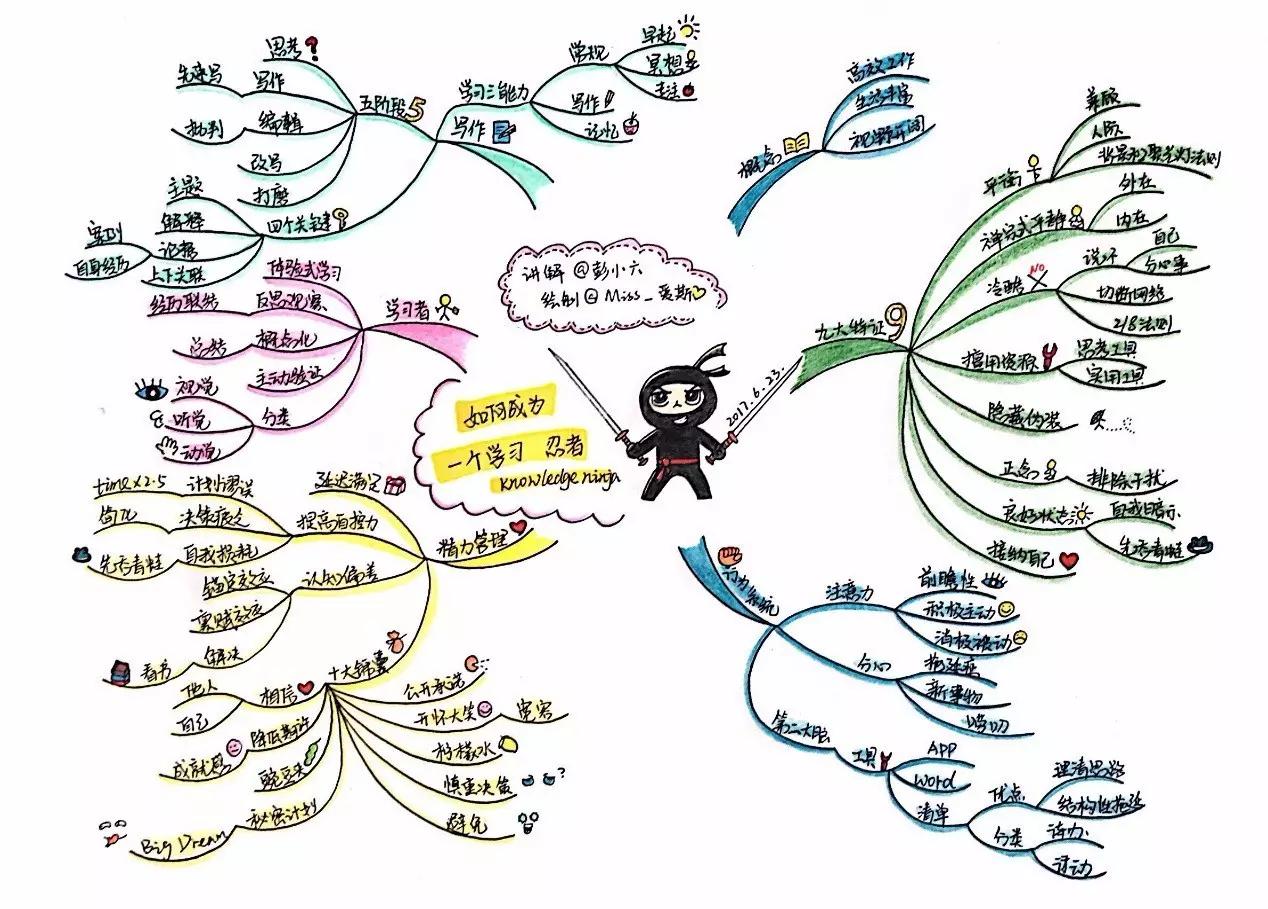 如何成为
一个学习 忍者
knowledge ninja
讲解 @彭小六
绘制@ Miss_爱斯
2017.6.23.
概念
高效工作
生活丰富
视野开阔
九大特征 9
平衡
兼顾
人际
禅定式平静
外在
内在
冷酷
NO
说不
自己
分心事
切断网络
2/8法则
擅用资源
思考工具
实用工具
隐藏伪装
正念
排除干扰
良好状态
自我暗示
先吞青蛙
接纳自己
行为系统
注意力
前瞻性
积极主动
消极被动
分心
拖延症
新事物
唠叨
第二大脑
工具
APP
word
清单
优点
理清思路
分类
待办
精力管理
延迟满足
提高自控力
计划谬误
time×2.5
决策疲劳
简化
自我损耗
先吞青蛙
认知偏差
锚定效应
禀赋效应
解决
看书
十大锦囊
公开承诺
开怀大笑
宽容
柠檬水
慎重决策
?
避免
相信
他人
自己
降低期许
成就感
豌豆夹
秘密计划
Big Dream
学习者
体验式学习
反思观察
经历联结
概念化
总结
主动验证
分类
视觉
听觉
动觉
写作
学习三能力
常规
早起
冥想
专注
写作
记忆
五阶段 5
思考
写作
先速写
编辑
批判
改写
打磨
四个关键
主题
解释
论据
案例
自身经历
上下关联